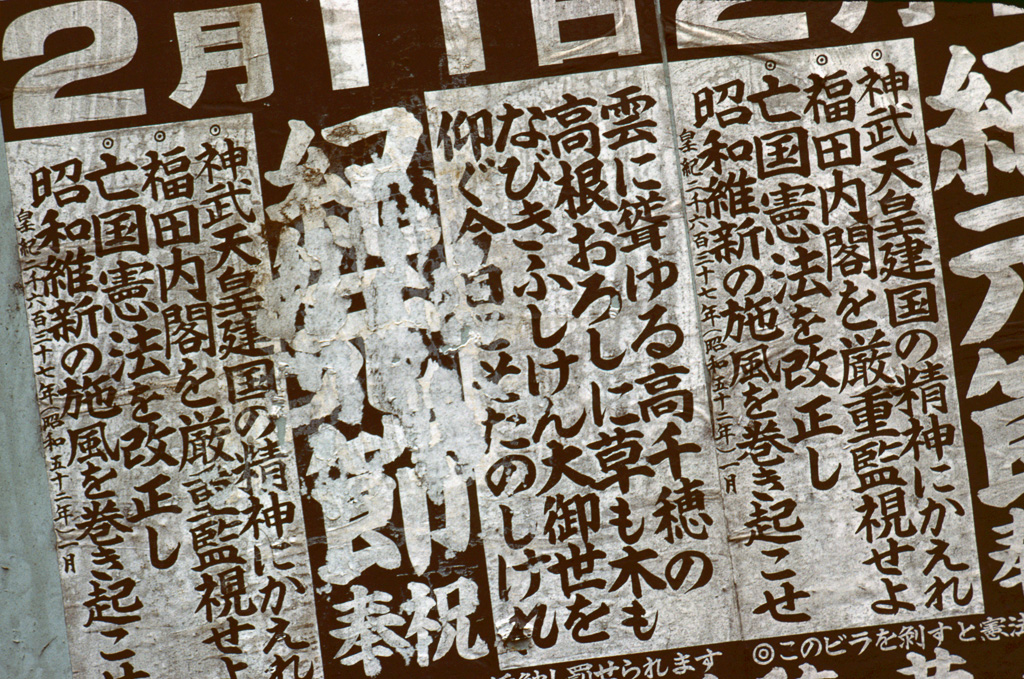 2月11日
2月
神武天皇建国の精神にかえれ
福田内閣を厳重監視せよ
亡国憲法を改正し
昭和維新の施風を巻き起こせ
皇紀二千六百三十七年(昭和五十二年)一月
雲に聳ゆる高千穂の
高根おろしに草も木も
なびきふしけん大御世を
仰ぐ今日こそたのしけれ
紀
節
奉祝
神武天皇建国の精神にかえれ
福田内閣を厳重監視せよ
亡国憲法を改正し
昭和維新の施風を巻き起こせ
皇紀二千六百三十七年(昭和五十二年)一月
◎このビラを剥すと憲法
罰せられます